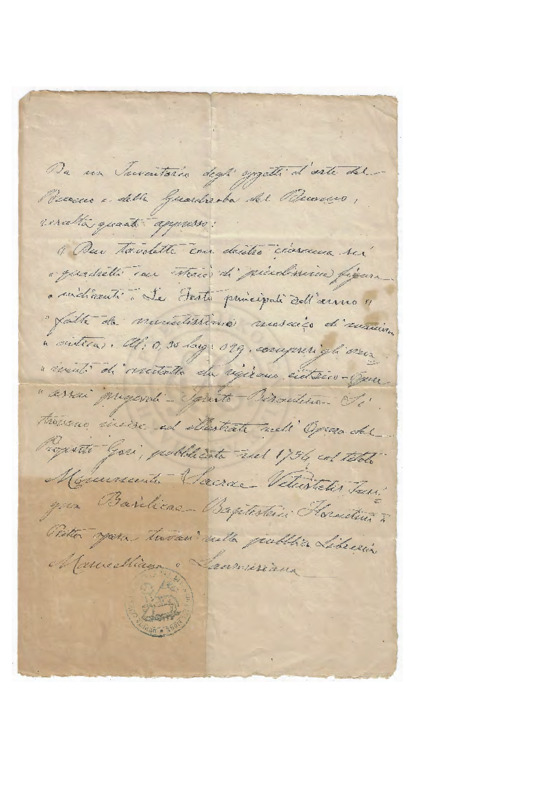 Da un Inventario degli oggetti d'arte del
Duomo e della Guardaroba del Duomo,
risulta quanto appresso:
" Due tavolette con dentro ciascuna sei
" quadretti con storie di piccolissime figure
" Le Feste principali dell'anno "
" fatte da minutissimo mosaico di maniera
" Al: 0,30 larg. 0,29. compresi gli orna
" menti di
" assai pregevoli - Si
trovano incise, ed illustrate nell'Opera del
Proposto Gori, pubblicata nel 1756 col titolo
Monumenta Sacrae Vetustatis Insi=
gnia Basilicae Baptisterii Florentini
opera trovasi nella pubblica Libreria
Marucelliana e Laurenziana